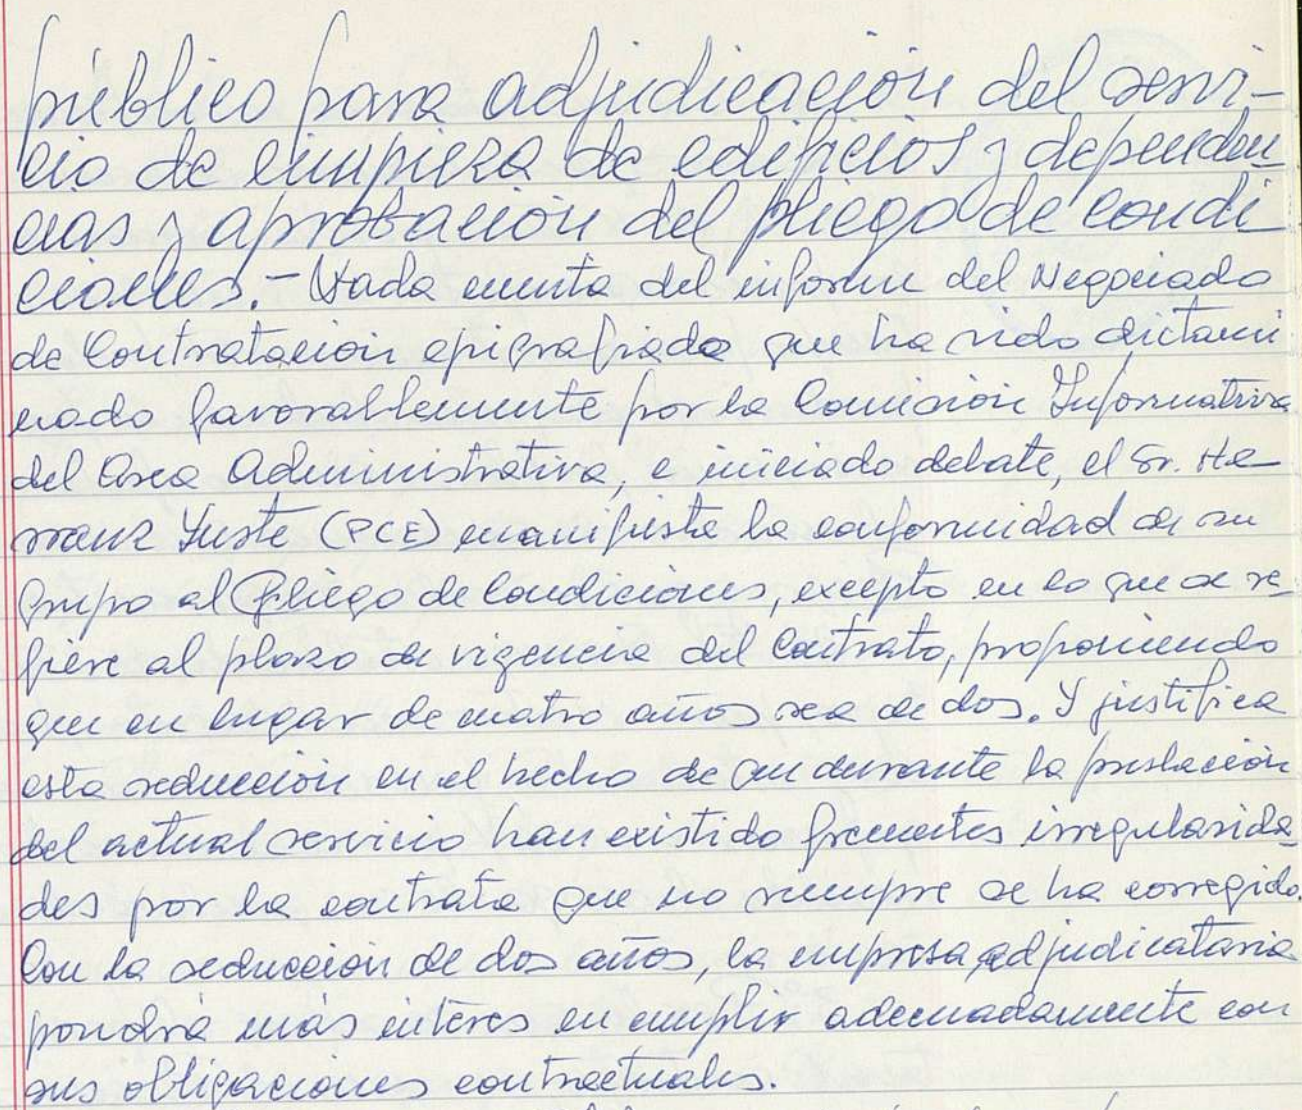 público para adjudicación del servi-
cio de limpieza de edificios y dependen-
cias y aprobación del pliego de condi
ciones.- Dada cuenta del informe del Negociado
de Contratación epigrafiado que ha sido dictami
nado favorablemente por la Comisión Informativa
del Area Administrativa, e iniciado debate, el Sr. He-
rranz Yuste (PCE) manifiesta la conformidad de su
Grupo al Pliego de Condiciones, excepto en lo que se re-
fiere al plazo de vigencia del Contrato, proponiendo
que en lugar de cuatro años sea de dos. Y justifica
esta reducción en el hecho de que durante la prestación
del actual servicio han existido frecuentes irregularida-
des por la contrata que no siempre se ha corregido.
Con la reducción de dos años, la empresa adjudicataria
pondrá más interés en cumplir adecuadamente con
sus obligaciones contractuales.